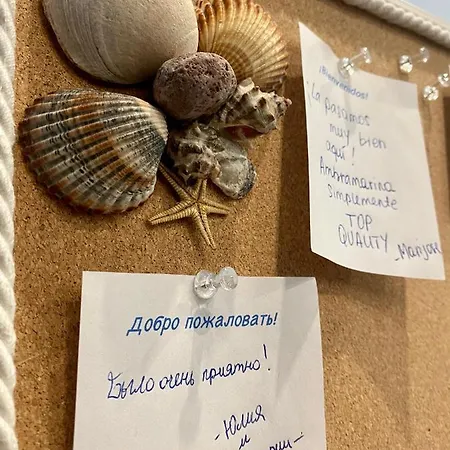 ¡Bienvenidos!
¡La pasamos
muy bien
aquí!
Ambramarina
Simplemente
TOP
QUALITY
Добро пожаловать!
Было очень приятно!
-Юлия
и